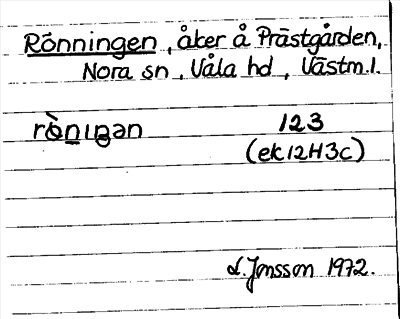 Rönningen, åker å Prästgården,
Nora sn, Våla hd, Västm.l.
rö̀nıŋən 123
(ek12H3c)
L. Jonsson 1972.